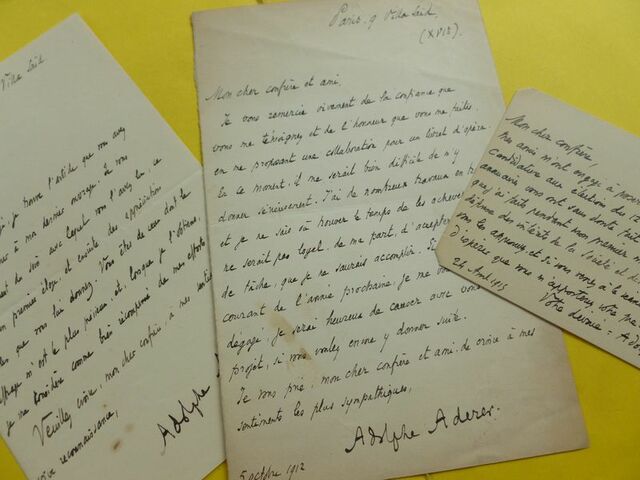 Villa Saïd
je trouve l'article que vous avez
à mon dernier ouvrage. Je vous
du soin avec lequel vous l'avez lu, ce
premier éloge, et ensuite des appréciations
que vous lui donnez. Vous êtes de ceux dont le
suffrage m'est le plus précieux et, lorsque je l'obtiens,
je me considère comme très récompensé de mes efforts.
Veuillez croire, mon cher confrère, à mes
vive reconnaissance,
Adolphe
Paris. 9 Villa Saïd,
(XVIe).
Mon cher confrère et ami,
Je vous remercie vivement de la confiance que
vous me témoignez et de l'honneur que vous me faites
en me proposant une collaboration pour un livret d'opéra
En ce moment, il me serait bien difficile de m'y
donner sérieusement. J'ai de nombreux travaux en
et je ne sais où trouver le temps de les achever
ne serait pas loyal, de ma part, d'accepter
de tâche, que je ne saurais accomplir. Si
courant de l'année prochaine, je me
dégagé, je serai heureux de causer avec vous
projet, si vous voulez encore y donner suite.
Je vous prie, mon cher confrère et ami, de croire à mes
sentiments les plus sympathiques,
Adolphe Aderer.
5 octobre 1912
Mon cher confrère,
Mes amis m'ont engagé à
candidature aux élections du
annuaire vous ont sans doute fait
que j'ai faits pendant mon premier
défense des intérêts de la Société et
vous les approuvez, et si vous venez à la
d'espérer que vous m'apporterez votre
24 Avril 1913
Votre dévoué - A.